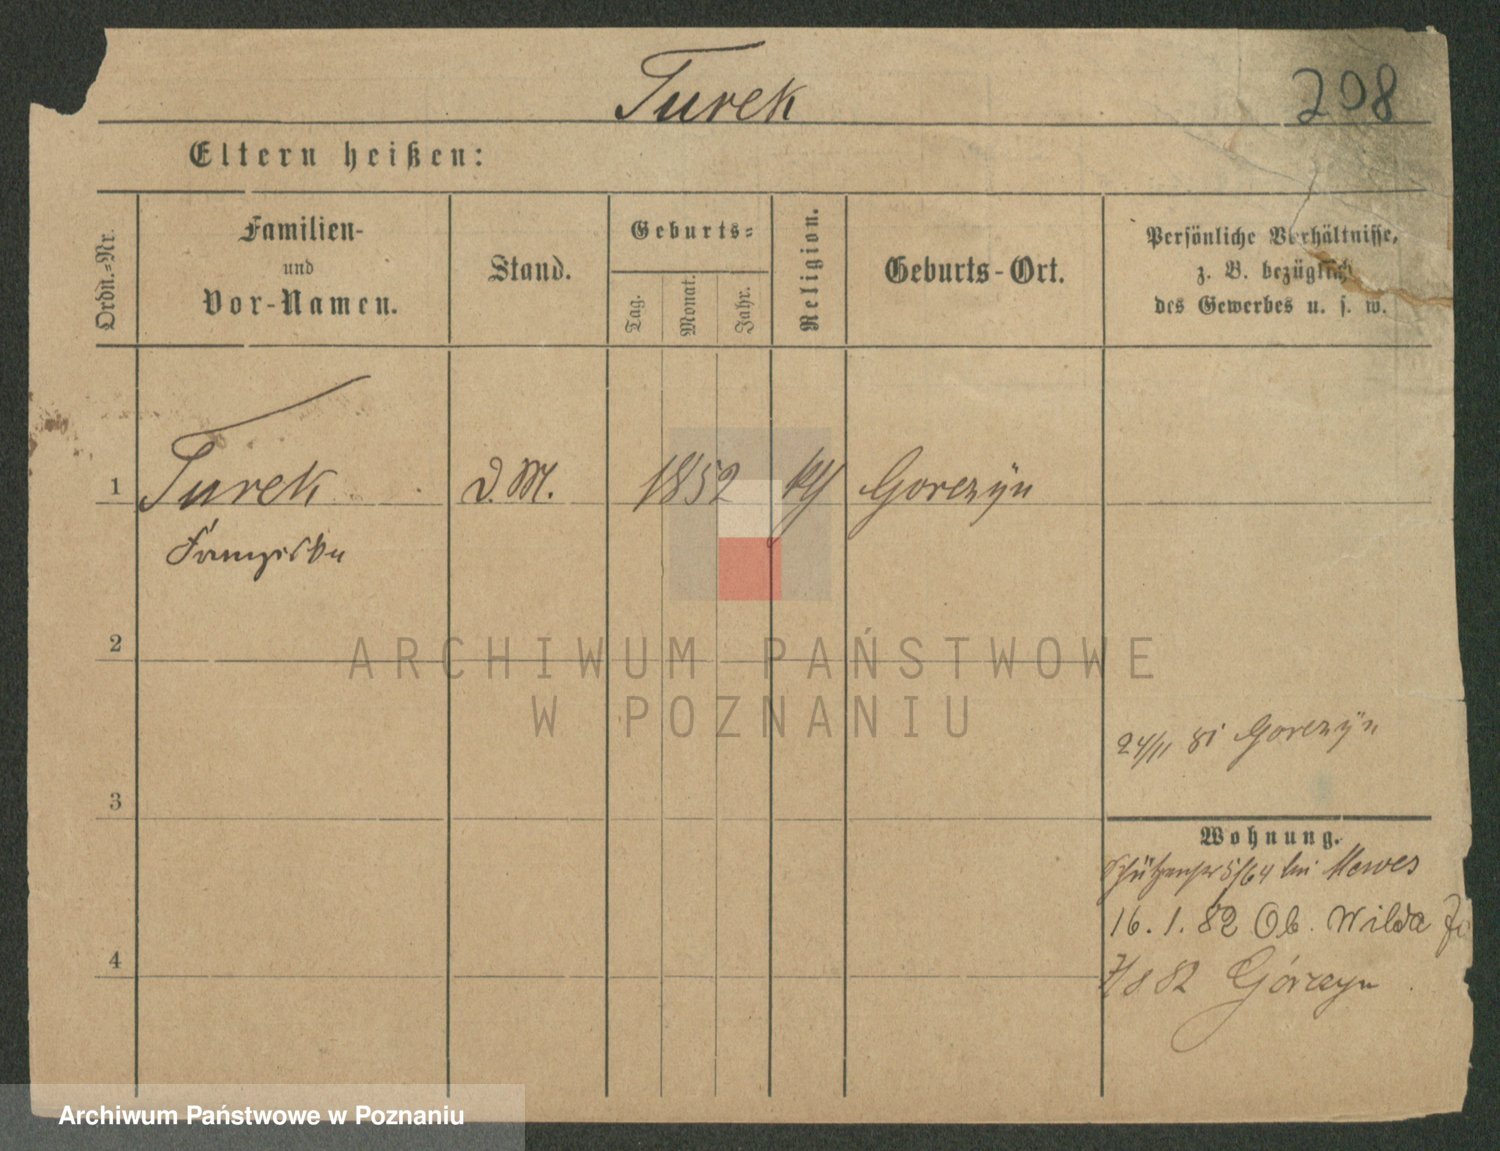 Turek
208
Eltern heißen:
Ordn.-Nr.
Familien-
und
Vor-Namen.
Stand.
Geburts-
Tag.
Monat.
Jahr.
Religion.
Geburts-Ort.
Persönliche Verhältnisse,
z. B. bezüglich
des Gewerbes u. s. w.
1
Turek
D. M.
1852
Gorczÿn
Franziska
2
ARCHIWUM PAŃSTWOWE
W POZNANIU
24/11 81 Gorczÿn
3
Wohnung.
Schützenstr 5/64 bei Mewes
16. 1. 82 Ob. Wilda
4
7/8 82 Górczyn
Archiwum Państwowe w Poznaniu